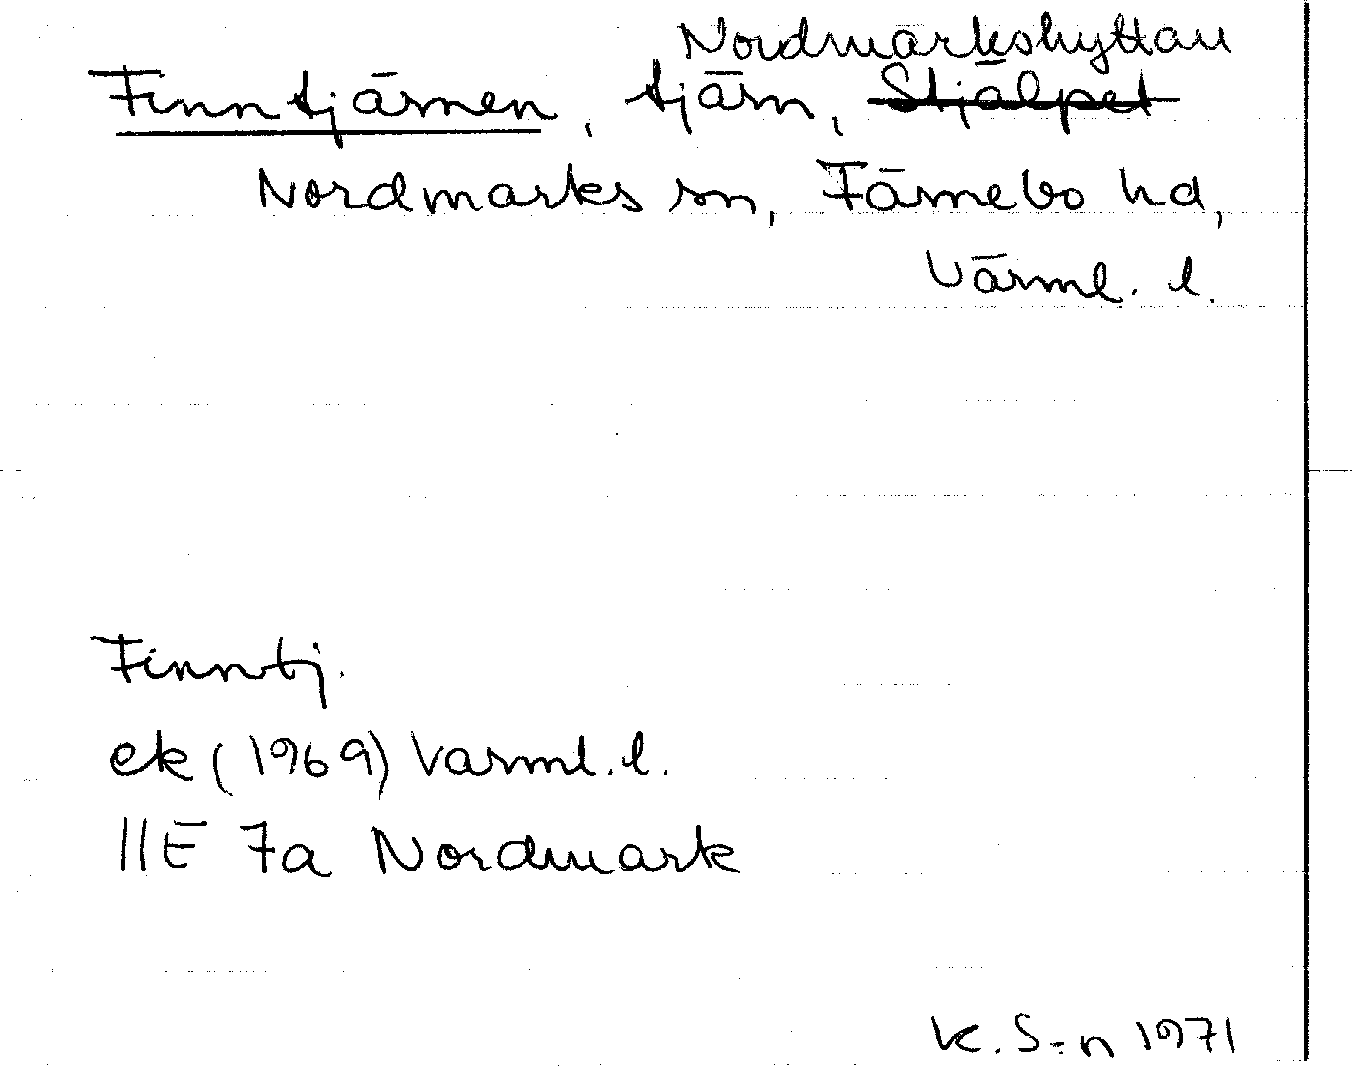 Nordmarkshyttan
Finntjärnen, tjärn, Stjälpet
Nordmarks sn, Färnebo hd,
Värml. l.
Finntj.
ek (1969) Värml. l.
11E 7a Nordmark
K. S-n 1971